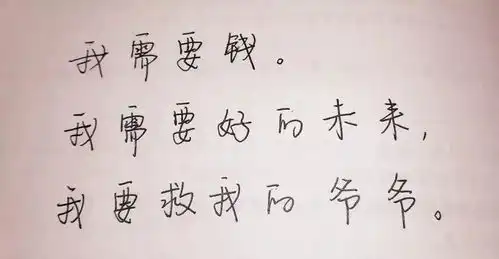 我需要钱。
我需要好的未来,
我要救我的爷爷。